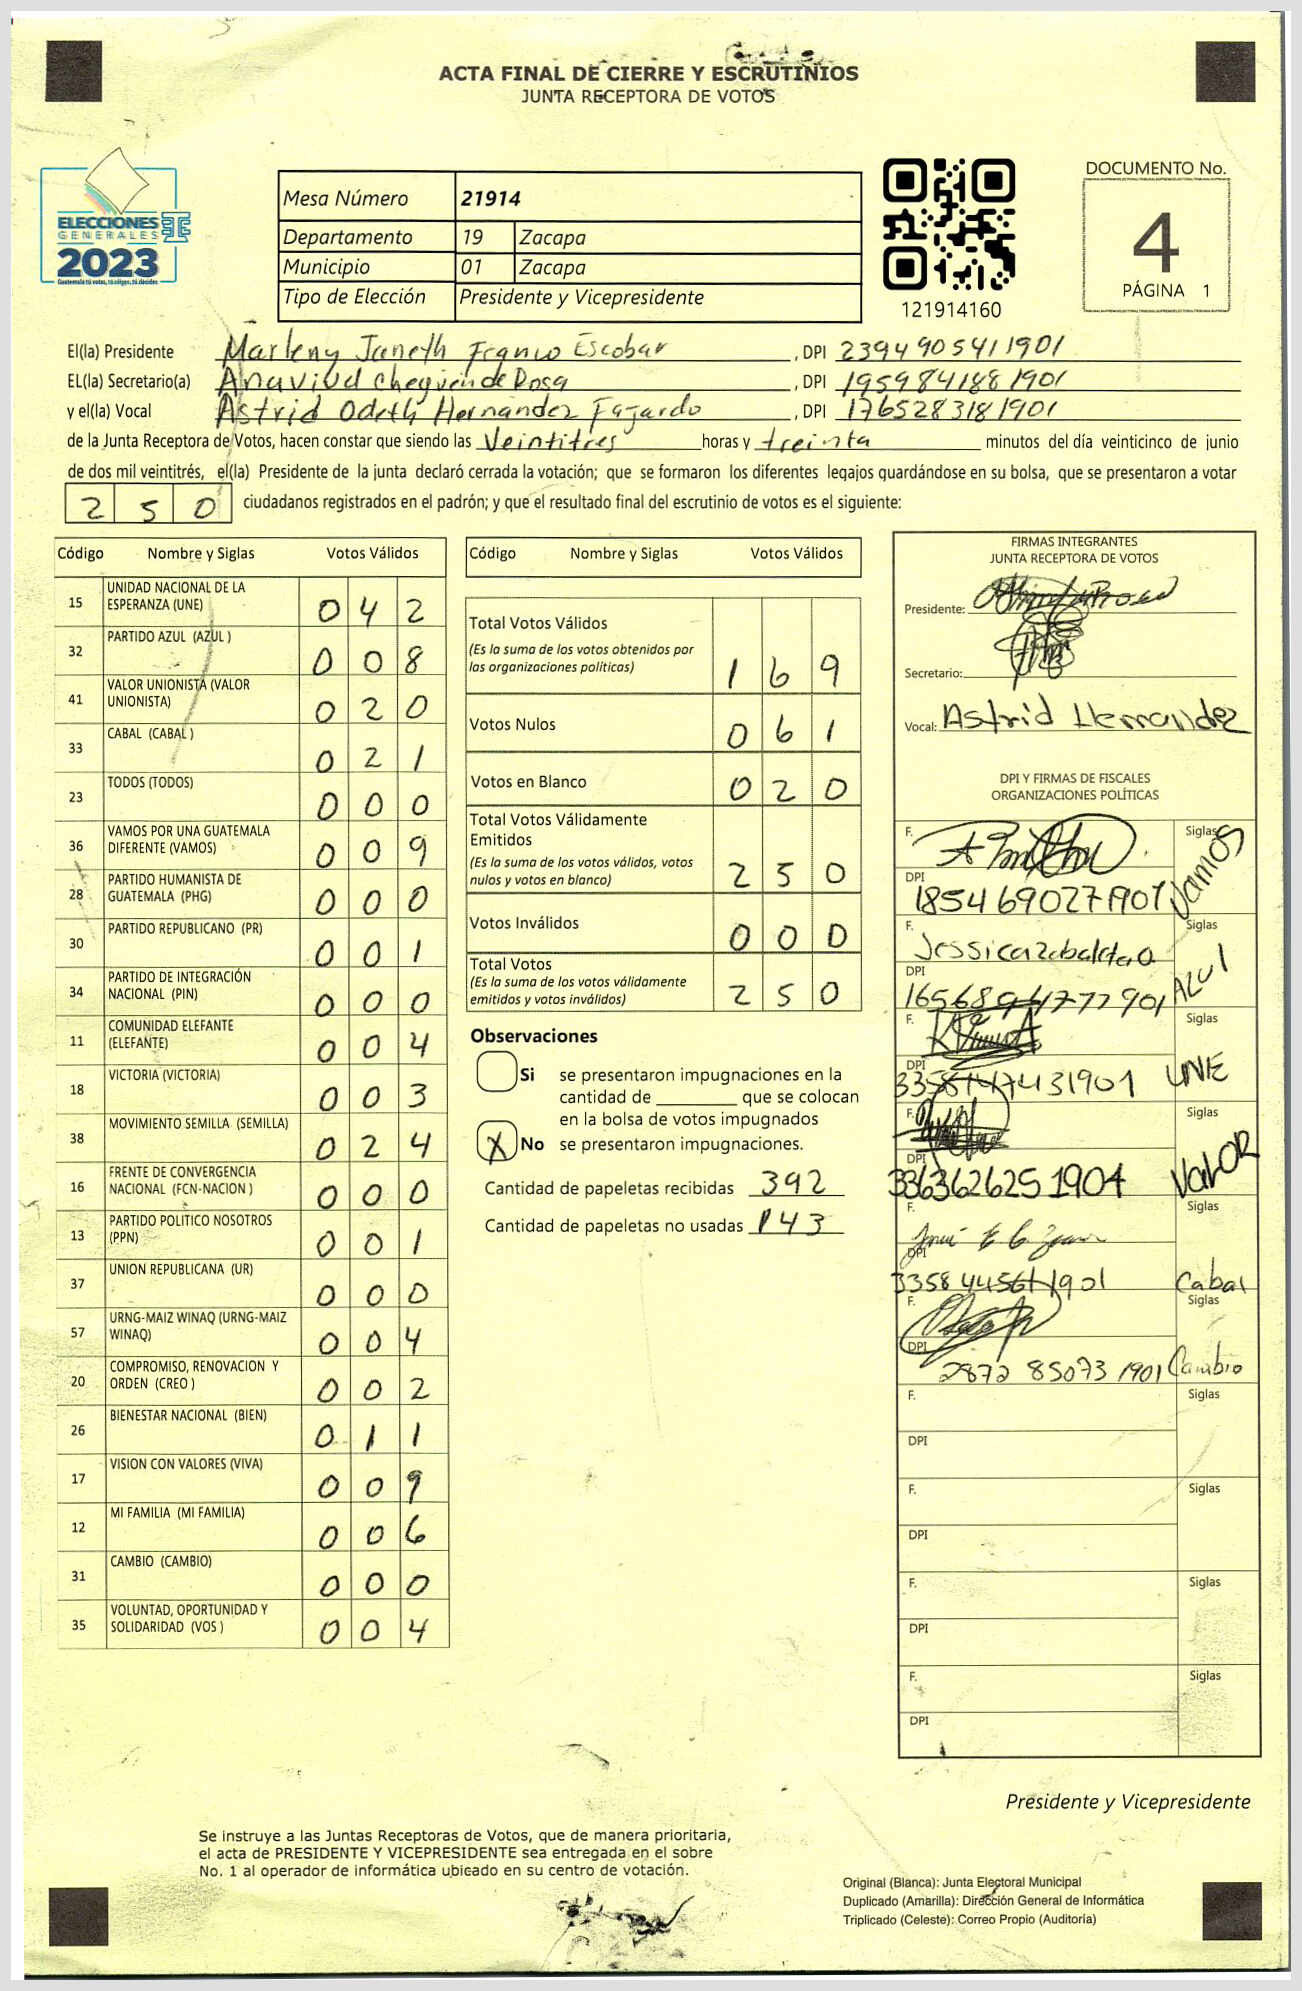 ACTA FINAL DE CIERRE Y ESCRUTINIOS
JUNTA RECEPTORA DE VOTOS
ELECCIONES
GENERALES
2023
Guatemala tú votas, tú eliges, tú decides
Mesa Número 21914
Departamento 19 Zacapa
Municipio 01 Zacapa
Tipo de Elección Presidente y Vicepresidente
121914160
DOCUMENTO No.
4
PÁGINA 1
El(la) Presidente Marleny Janeth Franco Escobar , DPI 2394905411901
EL(la) Secretario(a) Anaviud Cheguen de Rosa , DPI 1959841881901
y el(la) Vocal Astrid Odeth Hernandez Fajardo , DPI 1765283181901
de la Junta Receptora de Votos, hacen constar que siendo las Veintitres horas y treinta minutos del día veinticinco de junio
de dos mil veintitrés, el(la) Presidente de la junta declaró cerrada la votación; que se formaron los diferentes legajos guardándose en su bolsa, que se presentaron a votar
250 ciudadanos registrados en el padrón; y que el resultado final del escrutinio de votos es el siguiente:
Código Nombre y Siglas Votos Válidos
15 UNIDAD NACIONAL DE LA
ESPERANZA (UNE) 042
32 PARTIDO AZUL (AZUL ) 008
41 VALOR UNIONISTA (VALOR
UNIONISTA) 020
33 CABAL (CABAL ) 021
23 TODOS (TODOS) 000
36 VAMOS POR UNA GUATEMALA
DIFERENTE (VAMOS) 009
28 PARTIDO HUMANISTA DE
GUATEMALA (PHG) 000
30 PARTIDO REPUBLICANO (PR) 001
34 PARTIDO DE INTEGRACIÓN
NACIONAL (PIN) 000
11 COMUNIDAD ELEFANTE
(ELEFANTE) 004
18 VICTORIA (VICTORIA) 003
38 MOVIMIENTO SEMILLA (SEMILLA) 024
16 FRENTE DE CONVERGENCIA
NACIONAL (FCN-NACION ) 000
13 PARTIDO POLITICO NOSOTROS
(PPN) 001
37 UNION REPUBLICANA (UR) 000
57 URNG-MAIZ WINAQ (URNG-MAIZ
WINAQ) 004
20 COMPROMISO, RENOVACION Y
ORDEN (CREO ) 002
26 BIENESTAR NACIONAL (BIEN) 011
17 VISION CON VALORES (VIVA) 009
12 MI FAMILIA (MI FAMILIA) 006
31 CAMBIO (CAMBIO) 000
35 VOLUNTAD, OPORTUNIDAD Y
SOLIDARIDAD (VOS ) 004
Código Nombre y Siglas Votos Válidos
Total Votos Válidos
(Es la suma de los votos obtenidos por
las organizaciones políticas) 169
Votos Nulos 061
Votos en Blanco 020
Total Votos Válidamente
Emitidos
(Es la suma de los votos válidos, votos
nulos y votos en blanco) 250
Votos Inválidos 000
Total Votos
(Es la suma de los votos válidamente
emitidos y votos inválidos) 250
Observaciones
Si se presentaron impugnaciones en la
cantidad de ________ que se colocan
en la bolsa de votos impugnados
X No se presentaron impugnaciones.
Cantidad de papeletas recibidas 392
Cantidad de papeletas no usadas 143
FIRMAS INTEGRANTES
JUNTA RECEPTORA DE VOTOS
Presidente:
Secretario:
Vocal: Astrid Hernandez
DPI Y FIRMAS DE FISCALES
ORGANIZACIONES POLÍTICAS
F. Siglas
DPI 1854690271901 Vamos
F. Jessica Siglas
DPI AZUL
F. Siglas
DPI UNE
F. Siglas
DPI 3363626251904 VALOR
F. Siglas
DPI Cabal
F. Siglas
DPI 2872 85073 1901 Cambio
F. Siglas
DPI
F. Siglas
DPI
F. Siglas
DPI
F. Siglas
DPI
Presidente y Vicepresidente
Se instruye a las Juntas Receptoras de Votos, que de manera prioritaria,
el acta de PRESIDENTE Y VICEPRESIDENTE sea entregada en el sobre
No. 1 al operador de informática ubicado en su centro de votación.
Original (Blanca): Junta Electoral Municipal
Duplicado (Amarilla): Dirección General de Informática
Triplicado (Celeste): Correo Propio (Auditoría)